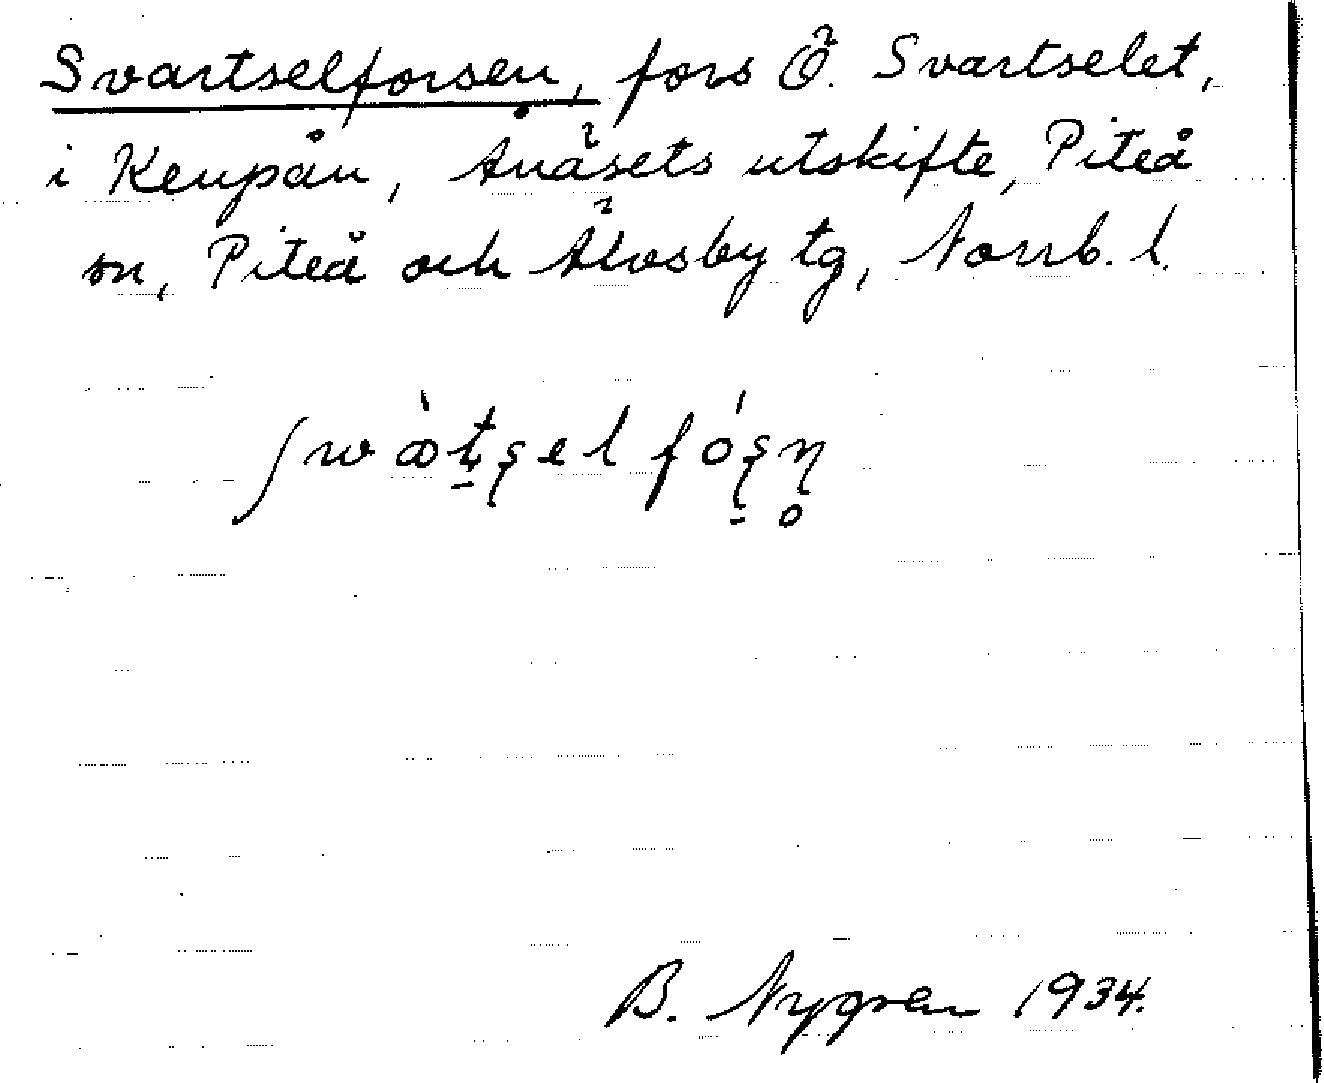 Svartselforsen, fors Ö. Svartselet,
i Keupån, Ånäsets utskifte, Piteå
sn, Piteå och Älvsby tg, Norrb. l.
B. Nygren 1934.